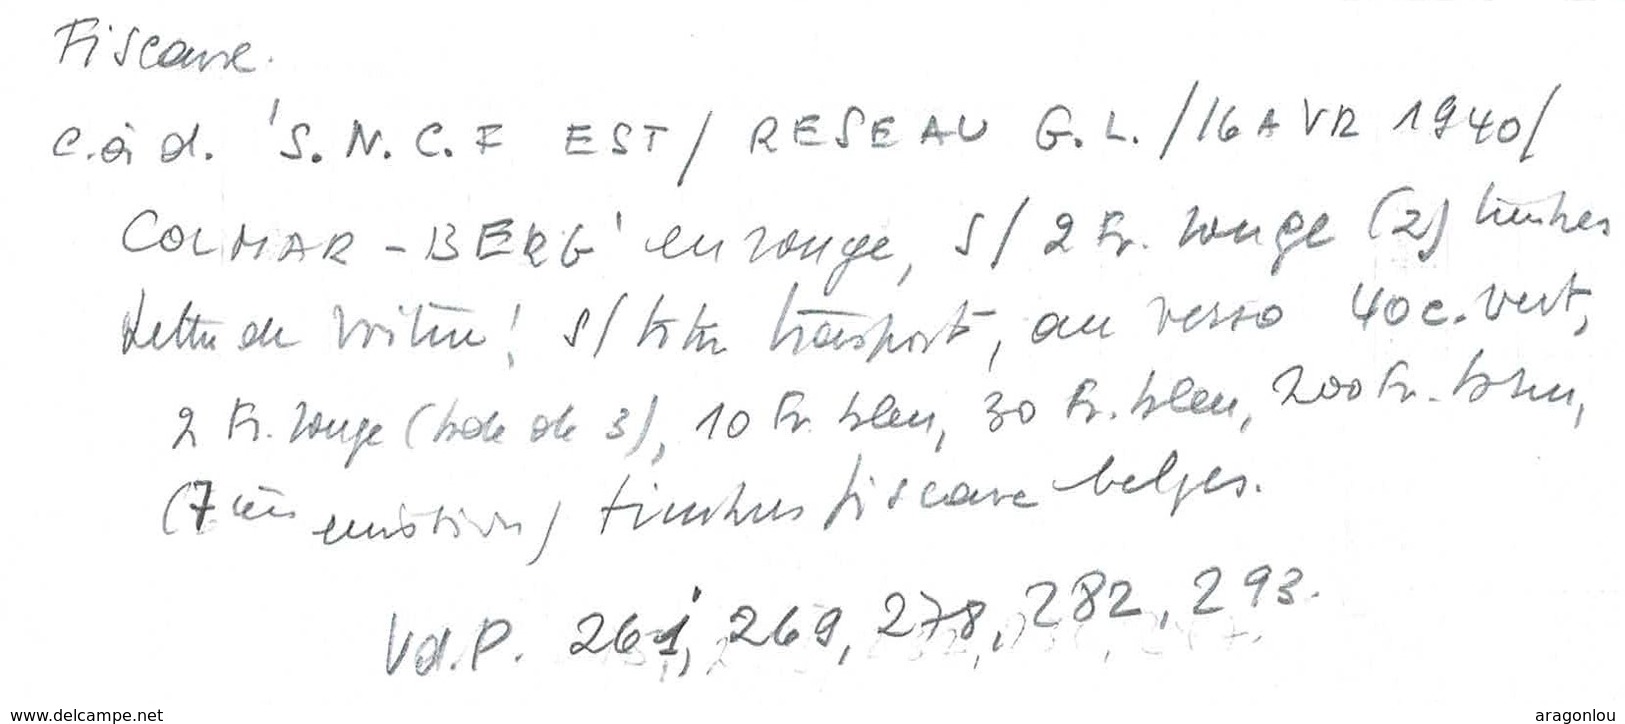 Fiscaux.
C. à d. 'S.N.C.F EST / RESEAU G.L. / 16 AVR 1940 /
COLMAR-BERG' en rouge, s/ 2 Fr. rouge (2) timbres
Lettre de voiture! s/ titre transport, au verso 40 c. vert,
2 Fr. rouge (bde de 3), 10 Fr. bleu, 30 Fr. bleu, 200 Fr. brun,
(7 ième émission) timbres fiscaux belges.
Vd.P. 261, 269, 278, 282, 293.
www.delcampe.net
aragonlou